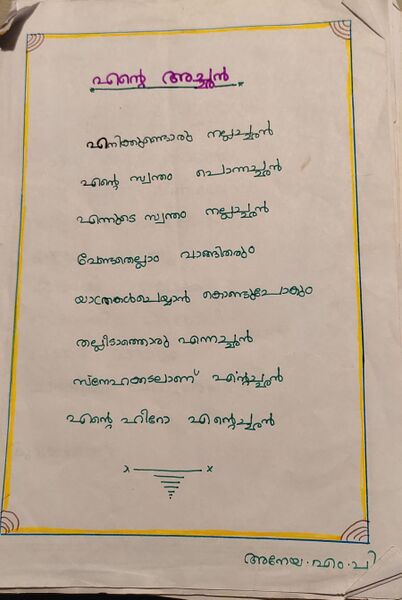 എന്റെ അച്ഛൻ
എനിക്കുണ്ടൊരു നല്ലച്ഛൻ
എന്റെ സ്വന്തം പൊന്നച്ഛൻ
എന്നുടെ സ്വന്തം നല്ലച്ഛൻ
വേണ്ടതെല്ലാം വാങ്ങിതരും
യാത്രകൾചെയ്യാൻ കൊണ്ടുപോകും
തല്ലീടാത്തൊരു എന്നച്ഛൻ
സ്നേഹക്കടലാണ് എന്റച്ഛൻ
എന്റെ ഹീറോ എന്റെച്ഛൻ
അനേയ.എം.പി